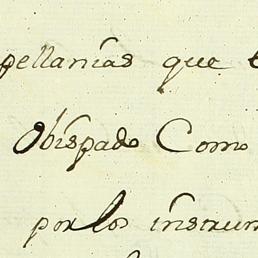 pellanias que
Obispado Como
por los instrum